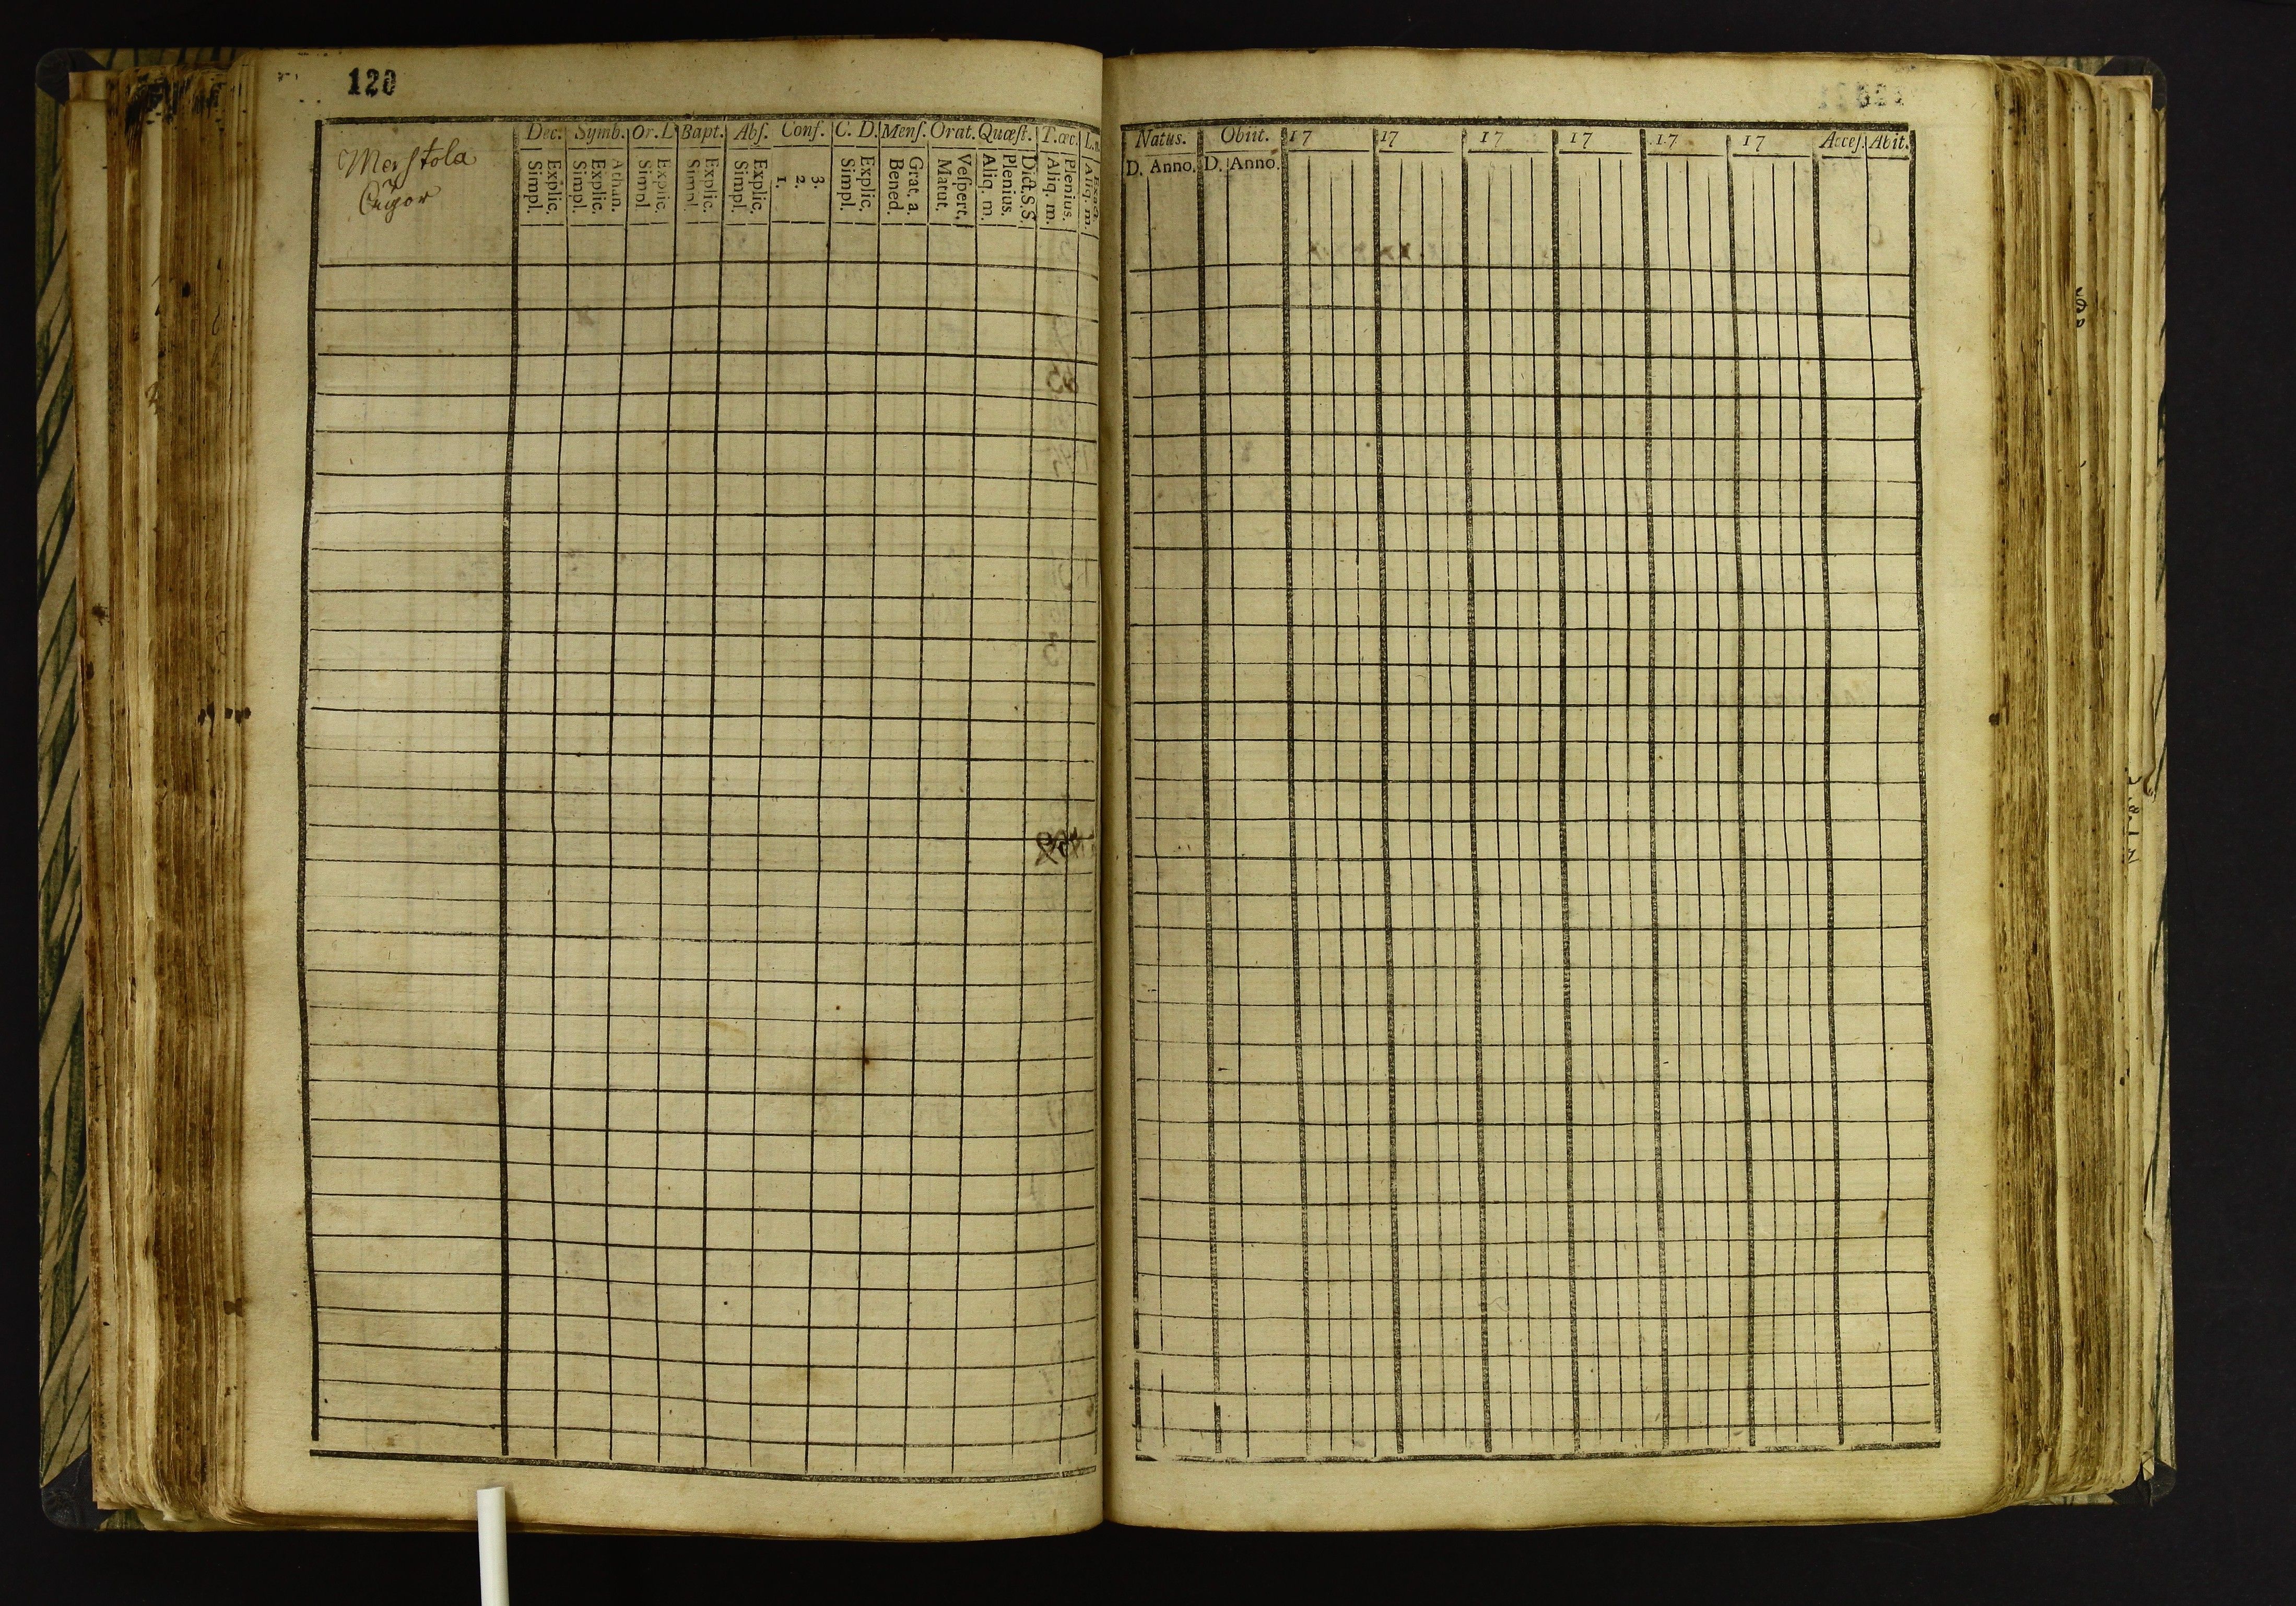 120
Dec. Symb. Or. D Bapt. Abſ. Conf. C. D. Menſ. Orat. Quæſt. T. œc. L.
Explic.
Simpl.
Athan.
Explic.
Simpl.
Explic.
Simpl.
Explic.
Simpl.
Explic.
Simpl.
3.
2.
1.
Explic.
Simpl.
Grat. a.
Bened.
Veſpert.
Matut.
Dict. S. S.
Plenius.
Aliq. m.
Plenius.
Aliq. m.
Exact.
Aliq. m.
Natus. Obiit. 17 17 17 17 17 17 Acceſ. Abit.
D. Anno. D. Anno.